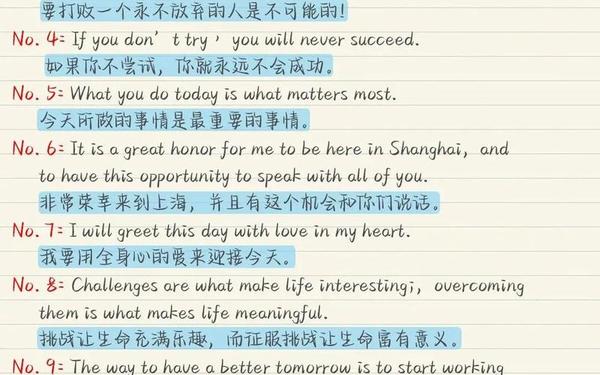 要打败一个永不放弃的人是不可能的!
No. 4: If you don't try, you will never succeed.
如果你不尝试，你就永远不会成功。
No. 5: What you do today is what matters most.
今天所做的事情是最重要的事情。
No. 6: It is a great honor for me to be here in Shanghai, and
to have this opportunity to speak with all of you.
非常荣幸来到上海，并且有这个机会和你们说话。
No. 7: I will greet this day with love in my heart.
我要用全身心的爱来迎接今天。
No. 8: Challenges are what make life interesting;, overcoming
them is what makes life meaningful.
挑战让生命充满乐趣，而征服挑战让生命富有意义。
No. 9: The way to have a better tomorrow is to start working